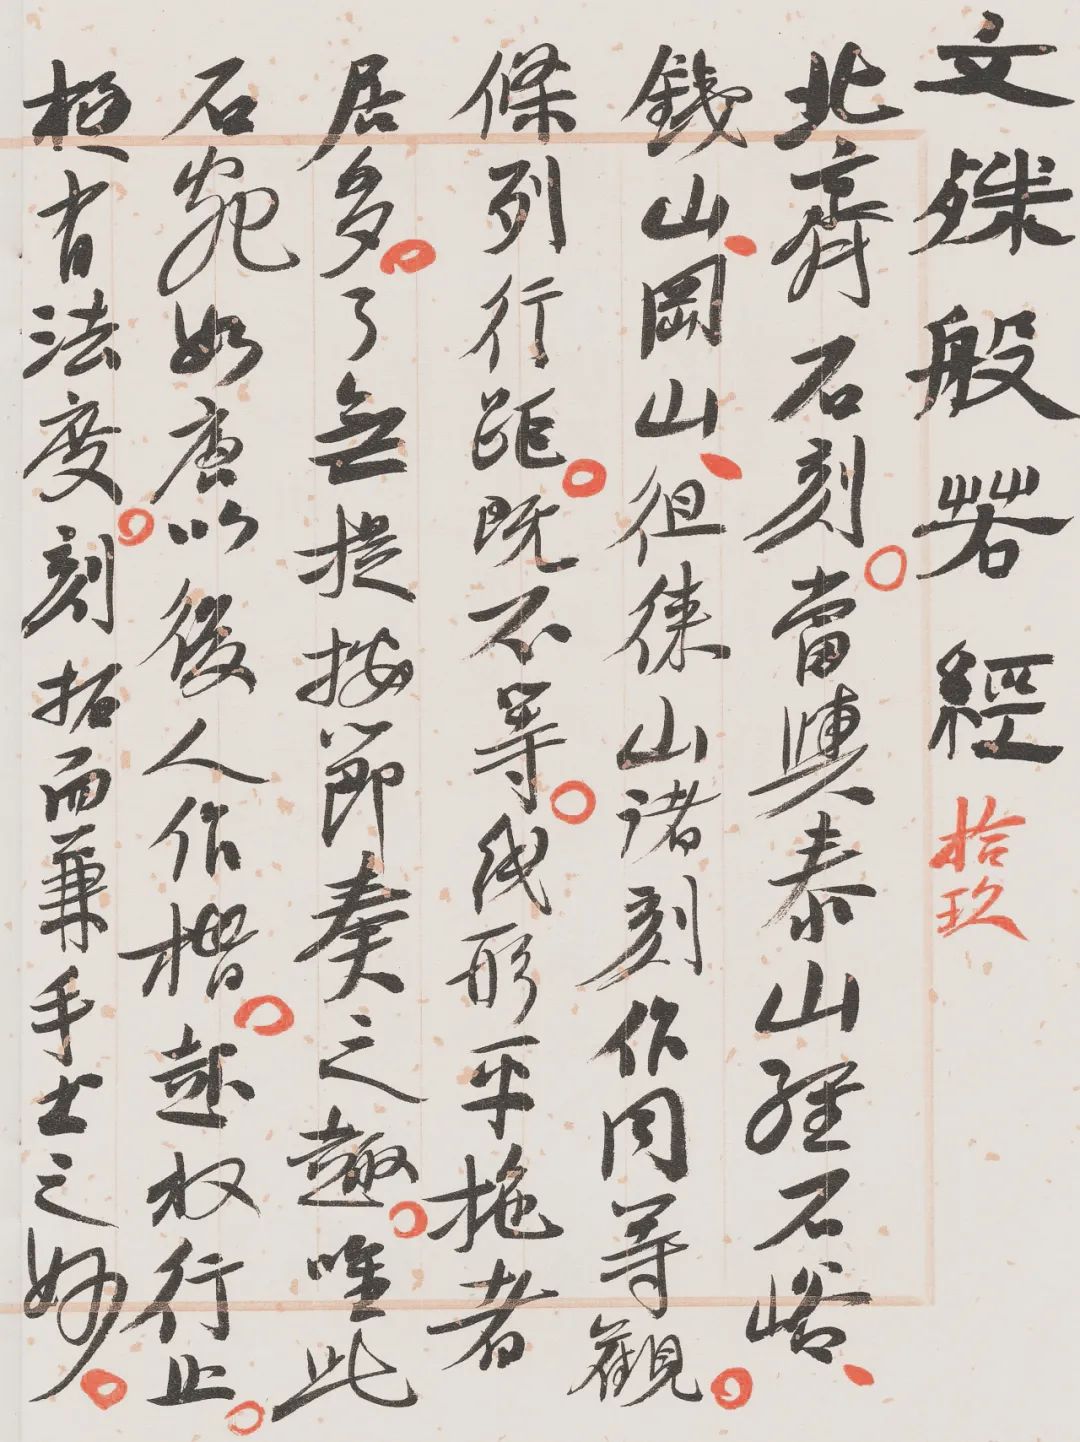 文殊般若經 拾玖
北齊石刻。當與泰山經石峪、
鐵山、岡山、徂徠山諸刻作同等觀。
條列行距。既不等。綫形平拖者
居多。了無提按節奏之趣。唯此
石宛如唐以後人作楷。起收行止。
極有法度。刻拓而兼手士之妙。